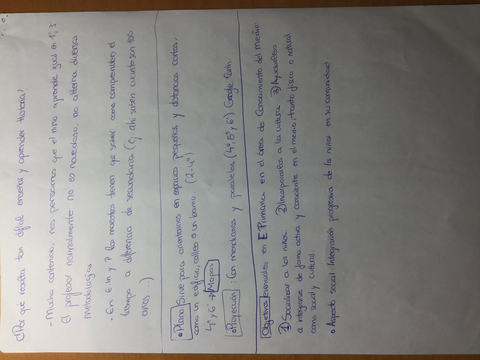 ¿Por qué resulta tan difícil enseñar y aprender historia?
- Mucho contenido, nos pensamos que el niño aprende igual en 1º, 3º
El profesor normalmente no es novedoso, no alterna diversas
metodologías
• En 6 in y ? los maestros tienen que saber como comprenden el
tiempo a diferencia de secundaria (ej ahí saben cuánto son 250
años...)
• Plano: Sirve para orientarnos en espacios pequeños y distancias cortas,
como un edificio, calles o un barrio. (2-4º)
4º y 6º → Mapas
• Proyección: Con meridianos y paralelos (4º, 5º y 6º) Google Earth.
Objetivos esenciales en E Primaria en el área de Conocimiento del Medio:
① Socializar a los niños ② Incorporarlos a la cultura ③ Ayudarlos
a integrarse de forma activa y consciente en el medio, tanto físico o natural
como social y cultural
• Aspecto social: Integración progresiva de los niños en su comunidad